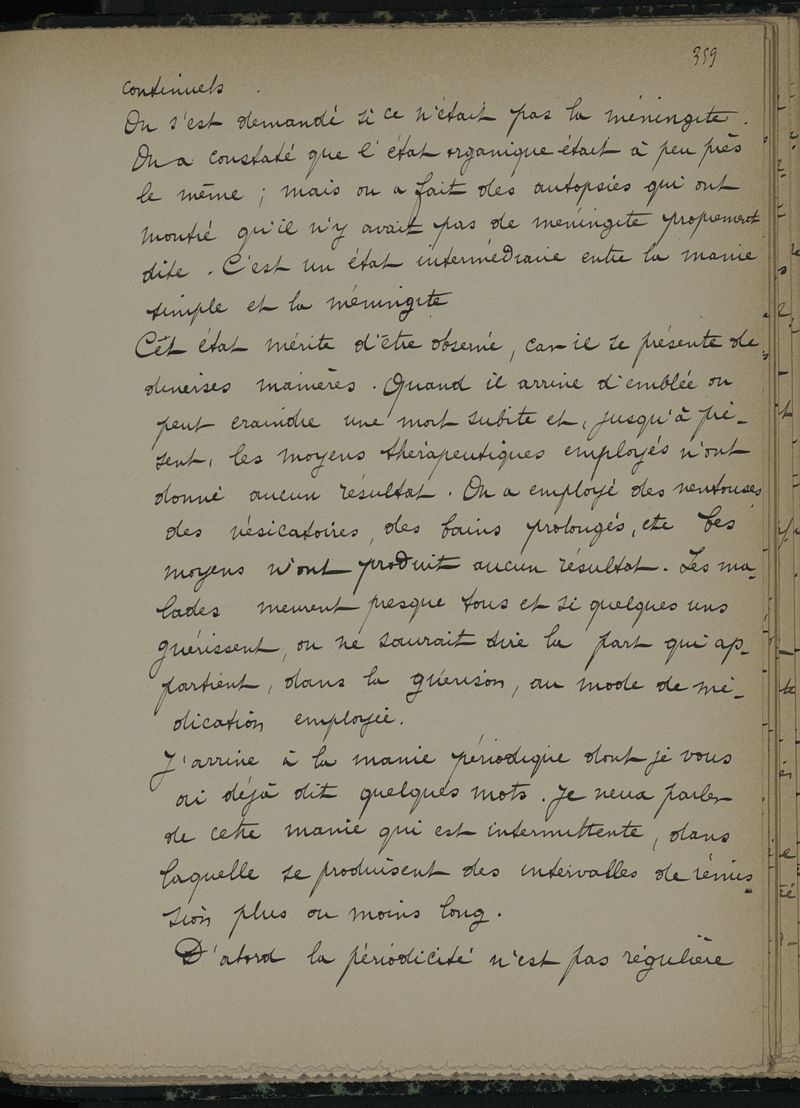 359
continuels .
On s'est demandé si ce n'était pas la méningite .
On a constaté que l'état organique était à peu près
le même ; mais on a fait des autopsies qui ont
montré qu'il n'y avait pas de méningite proprement
dite . C'est un état intermédiaire entre la manie
simple et la méningite
Cet état mérite d'être observé, car il se présente de
diverses manières . Quand il arrive d'emblée on
peut craindre une mort subite et, jusqu'à pré-
sent, les moyens thérapeutiques employés n'ont
donné aucun résultat . On a employé des ventouses
des vésicatoires, des bains prolongés, etc Ces
moyens n'ont produit aucun résultat . Les ma-
lades meurent presque tous et si quelques uns
guérissent, on ne saurait dire la part qui ap-
partient, dans la guérison, au mode de mé-
dication employée .
J'arrive à la manie périodique dont je vous
ai déjà dit quelques mots . Je veux parler
de cette manie qui est intermittente, dans
laquelle se produisent des intervalles de rémis-
sion plus ou moins long .
D'abord la périodicité n'est pas régulière